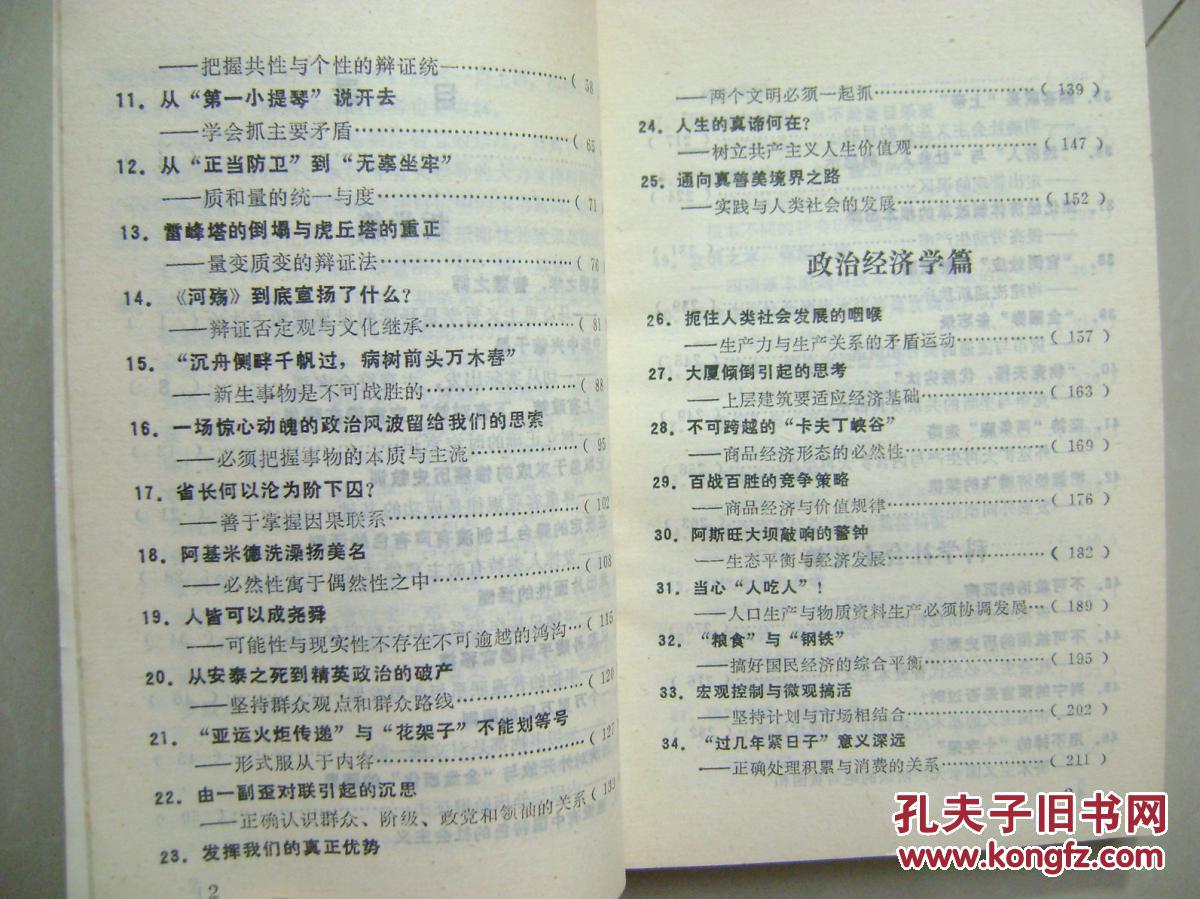 ——把握共性与个性的辩证统一……………………( 58
11．从“第一小提琴”说开去
——学会抓主要矛盾……………………………( 65
12．从“正当防卫”到“无辜坐牢”
——质和量的统一与度…………………………( 71
13．雷峰塔的倒塌与虎丘塔的重正
——量变质变的辩证法…………………………( 76
14．《河殇》到底宣扬了什么？
——辩证否定观与文化继承……………………( 81
15．“沉舟侧畔千帆过，病树前头万木春”
——新生事物是不可战胜的……………………( 88
16．一场惊心动魄的政治风波留给我们的思索
——必须把握事物的本质与主流………………( 95
17．省长何以沦为阶下囚？
——善于掌握因果联系…………………………( 102
18．阿基米德洗澡扬美名
——必然性寓于偶然性之中……………………( 108
19．人皆可以成尧舜
——可能性与现实性不存在不可逾越的鸿沟…( 115
20．从安泰之死到精英政治的破产
——坚持群众观点和群众路线…………………( 120
21．“亚运火炬传递”与“花架子”不能划等号
——形式服从于内容……………………………( 127
22．由一副歪对联引起的沉思
——正确认识群众、阶级、政党和领袖的关系( 133
23．发挥我们的真正优势
2
——两个文明必须一起抓………………………( 139 )
24．人生的真谛何在？
——树立共产主义人生价值观…………………( 147 )
25．通向真善美境界之路
——实践与人类社会的发展……………………( 152 )
政治经济学篇
26．扼住人类社会发展的咽喉
——生产力与生产关系的矛盾运动……………( 157 )
27．大厦倾倒引起的思考
——上层建筑要适应经济基础…………………( 163 )
28．不可跨越的“卡夫丁峡谷”
——商品经济形态的必然性……………………( 169 )
29．百战百胜的竞争策略
——商品经济与价值规律………………………( 176 )
30．阿斯旺大坝敲响的警钟
——生态平衡与经济发展………………………( 182 )
31．当心“人吃人”！
——人口生产与物质资料生产必须协调发展…( 189 )
32．“粮食”与“钢铁”
——搞好国民经济的综合平衡…………………( 195 )
33．宏观控制与微观搞活
——坚持计划与市场相结合……………………( 202 )
34．“过几年紧日子”意义深远
——正确处理积累与消费的关系………………( 211 )
孔夫子旧书网
www.kongfz.com